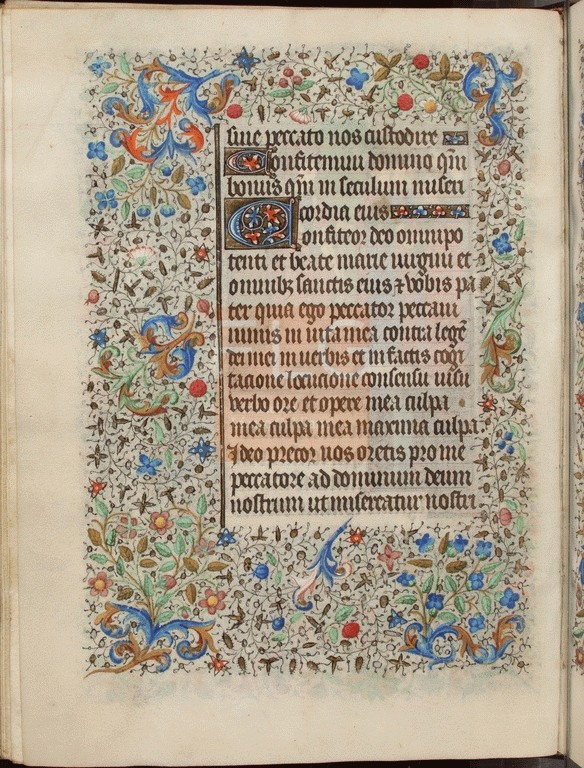 sine peccato nos custodire
Confitemini domino qm̄
bonus qm̄ in seculum miseri
cordia eius
Confiteor deo omnipo
tenti et beate marie uirgini et
omnibꝫ sanctis eius ⁊ vobis pa
ter quia ego peccator peccaui
nimis in uita mea contra legē
dei mei in uerbis et in factis cogi
tacione locucione consensu uisu
verbo ore et opere mea culpa
mea culpa mea maxima culpa
Ideo precor uos oretis pro me
peccatore ad dominum deum
nostrum ut misereatur nostri